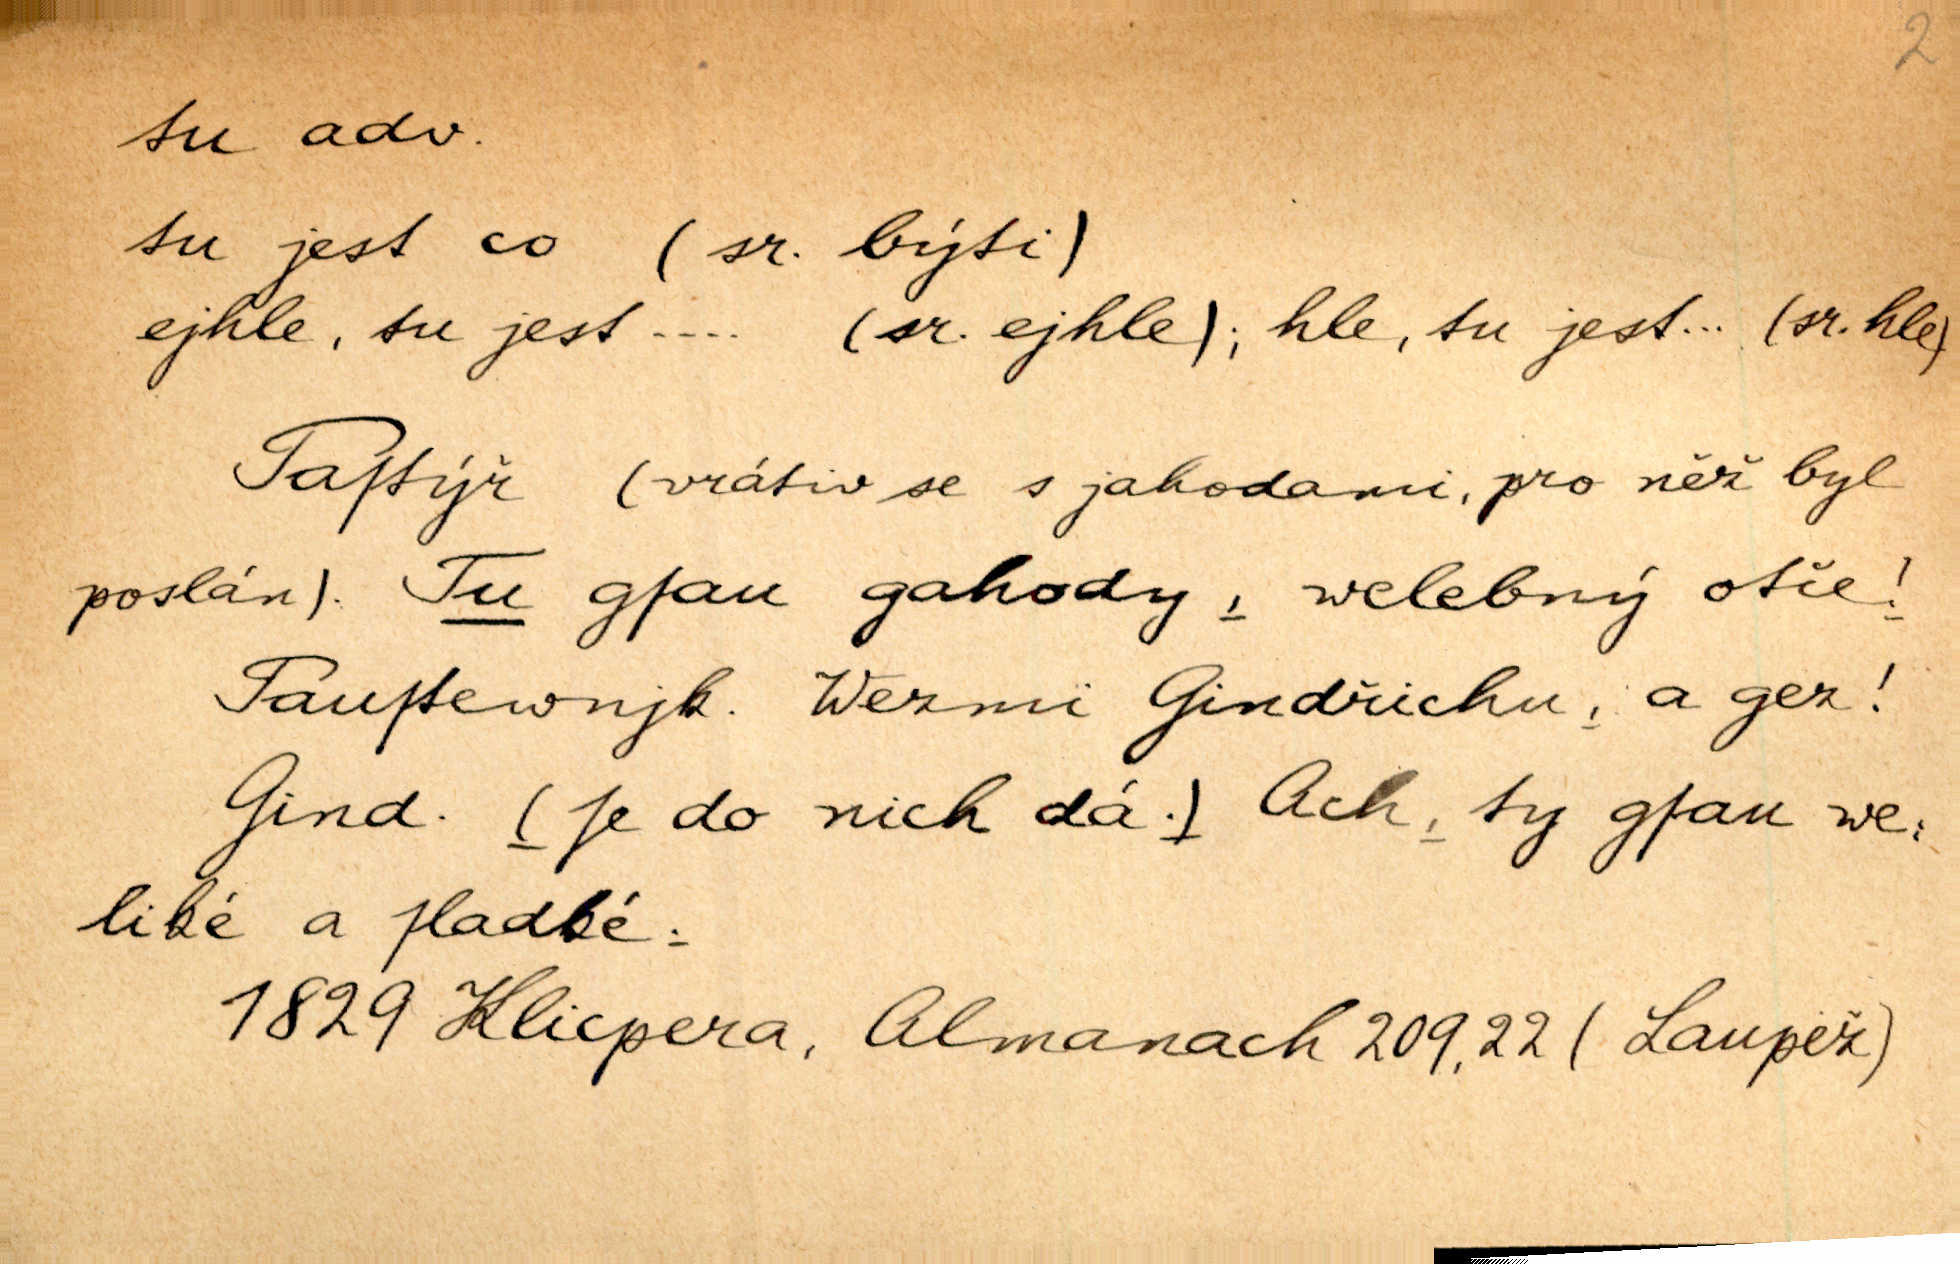 2
tu adv.
tu jest co (sr. býti)
ejhle, tu jest .... (sr. ejhle); hle, tu jest... (sr. hle)
Paſtýř (vrátiv se s jahodami, pro něž byl
poslán). Tu gſau gahody, welebný otče!
Pauſtewnjk. Wezmi Gindřichu, a gez!
Gind. (ſe do nich dá.) Ach, ty gſau we:
liké a ſladké.
1829 Klicpera, Almanach 209,22 (Laupež)